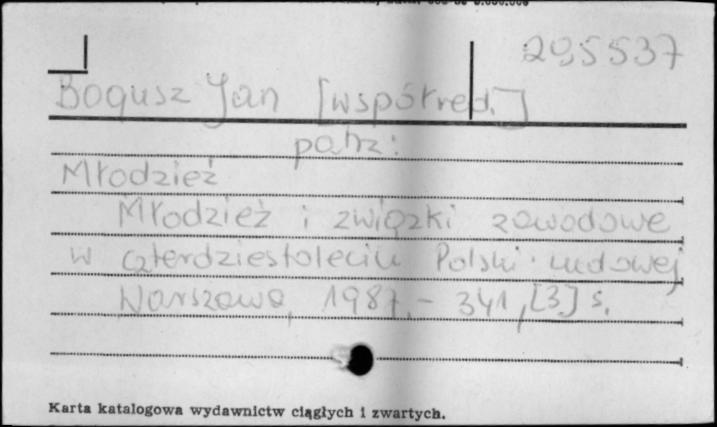 295537
Bogusz Jan [współred.]
patrz:
Młodzież
Młodzież i związki zawodowe
w czterdziestoleciu Polski ludowej
Warszawa, 1987. – 341, [3] s.
Karta katalogowa wydawnictw ciągłych i zwartych.